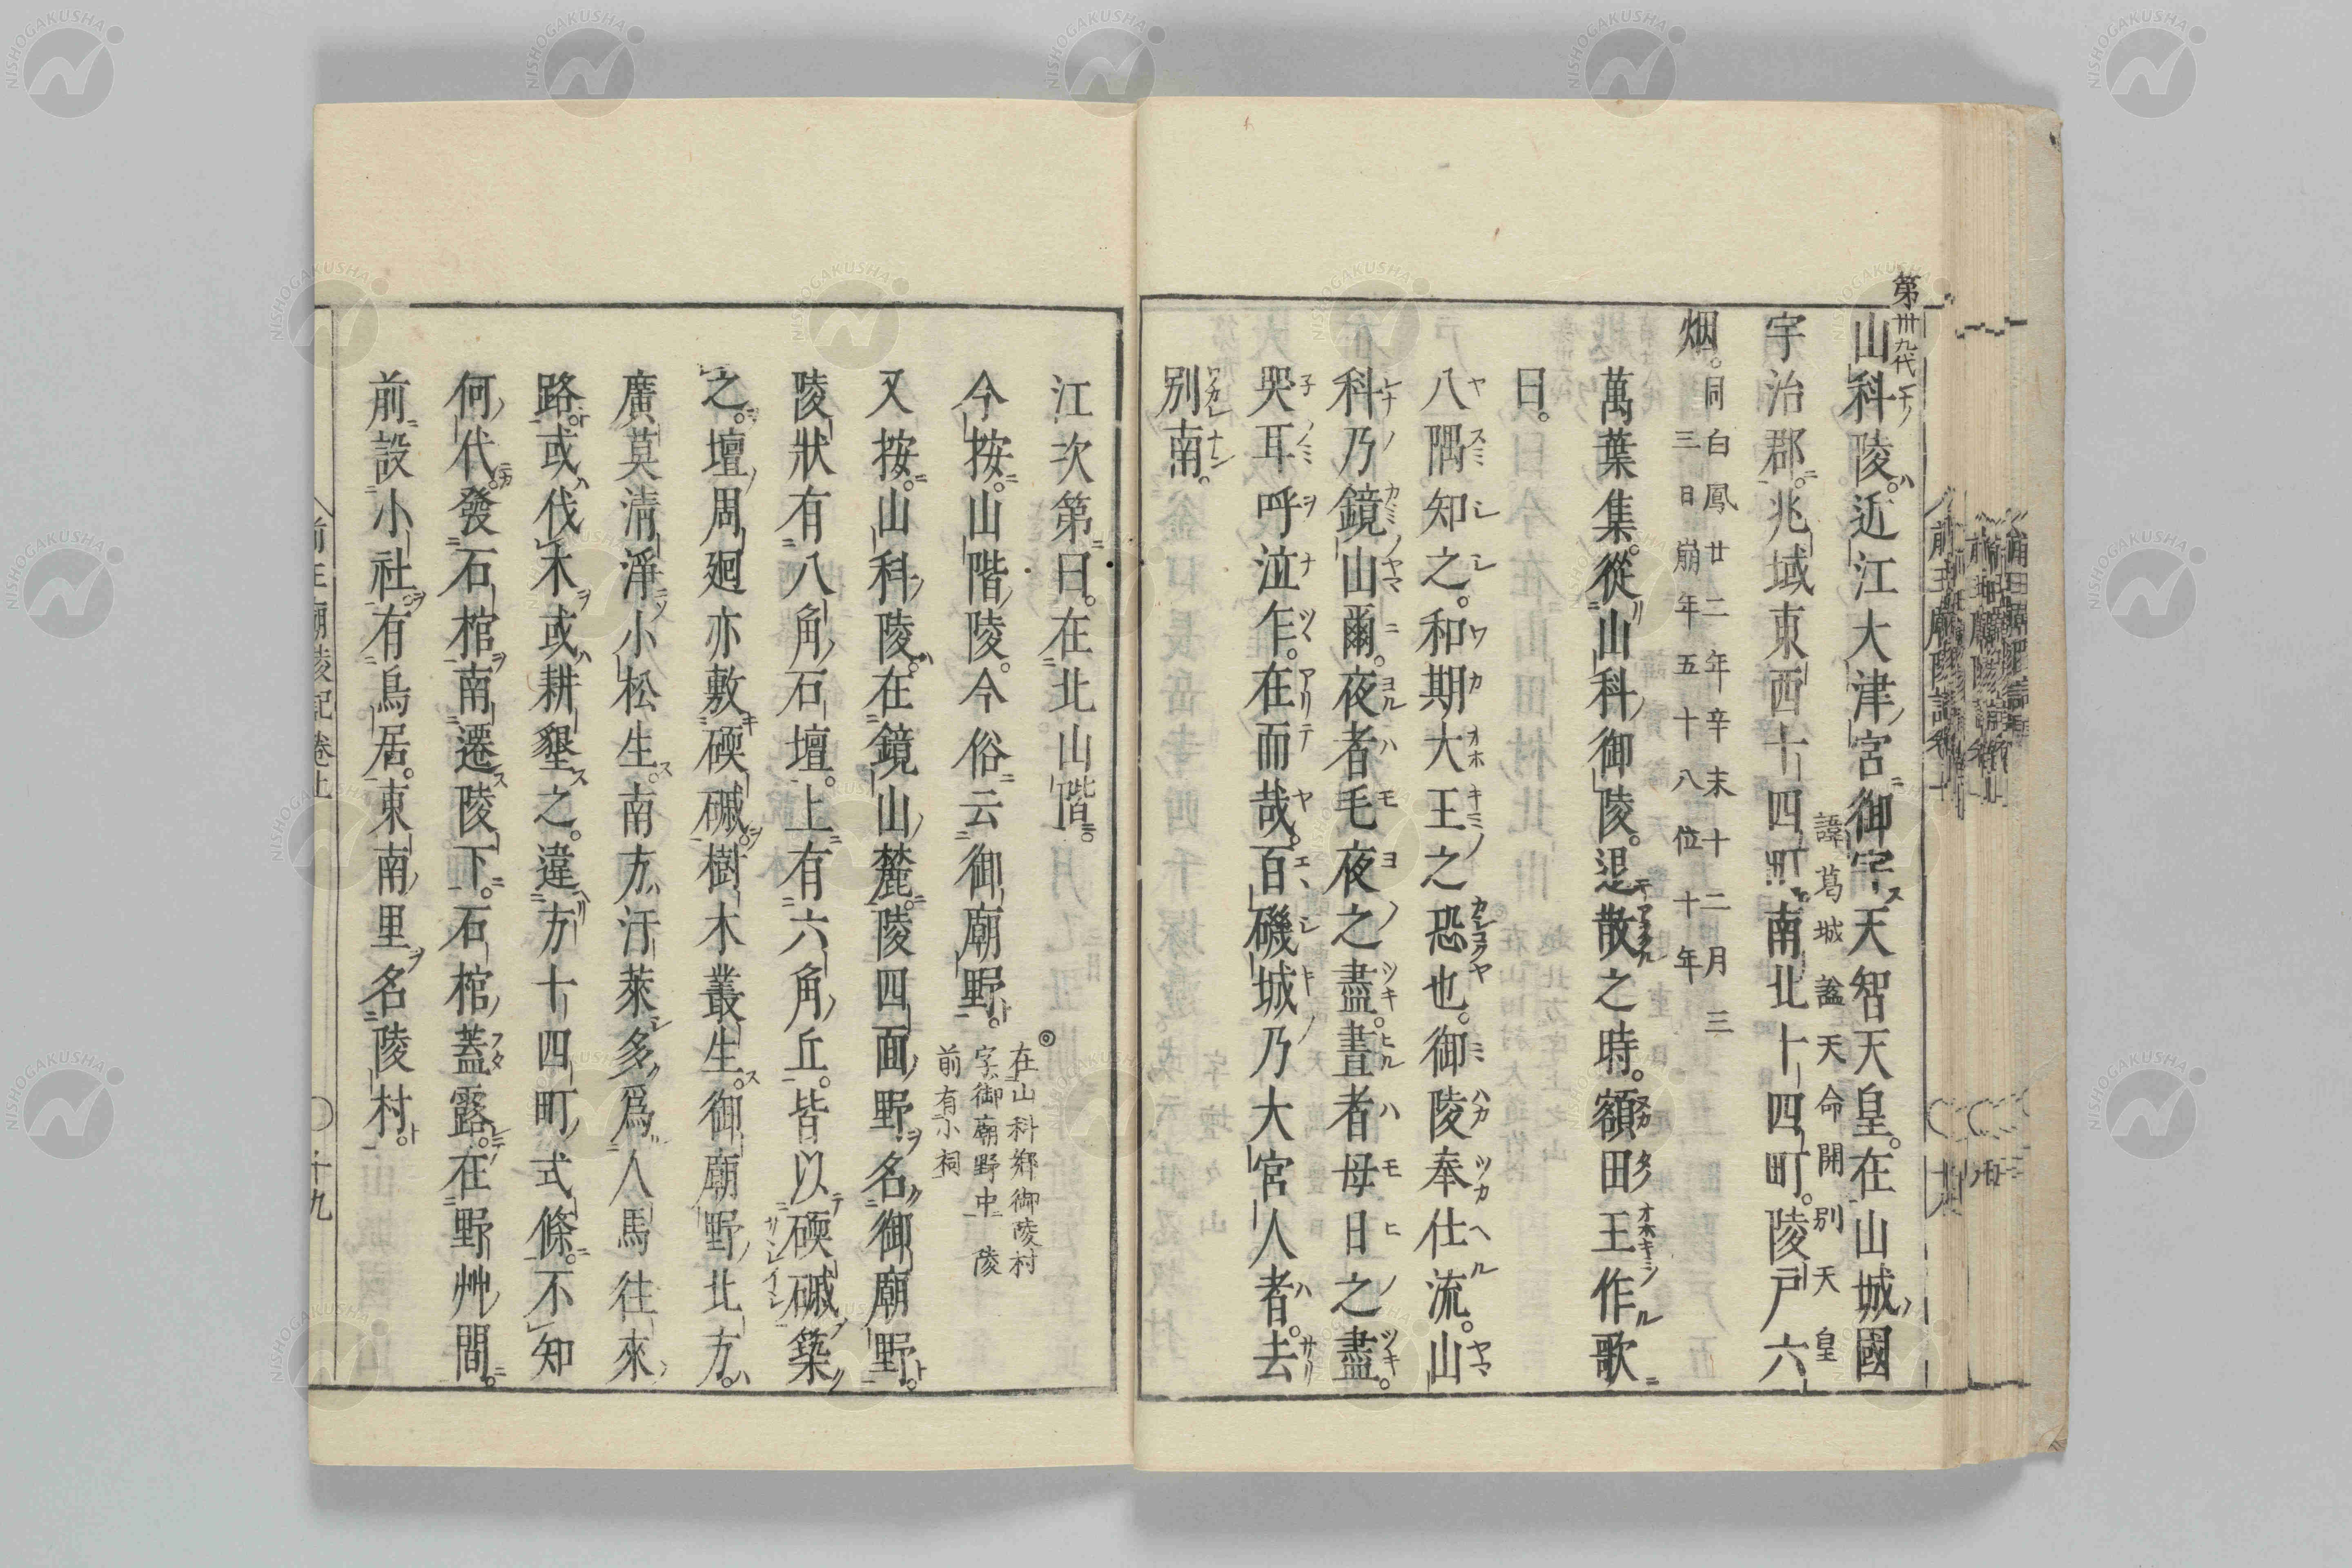 第卅九代
山科陵。近江大津宮御宇天智天皇。在山城國
諱葛城 諡天命開別天皇
宇治郡。兆域東西十四町。南北十四町。陵戸六
烟。
同白鳳廿二年辛未十二月三
三日崩年五十八位十年
萬葉集。從山科御陵。退散之時。額田王作歌
曰。
八隅知之。和期大王之恐也。御陵奉仕流。山
科乃鏡山爾。夜者毛夜之盡。晝者母日之盡。
哭耳呼泣乍。在而哉。百磯城乃大宮人者。去
別南。
江次第曰。在北山階。
今按。山階陵。今俗云御廟野。
◎在山科郷御陵村
字御廟野中 陵
前有小祠
又按。山科陵。在鏡山麓。陵四面野名御廟野。
陵狀有八角石壇。上有六角丘。皆以碝磩築
之。壇周廻亦敷碝磩。樹木叢生。御廟野北方。
廣莫清淨小松生。南方汙萊多。爲人馬往來
路。或伐木或耕墾之。違方十四町式條。不知
何代發石棺南遷陵下。石棺蓋露。在野艸間。
前設小社。有鳥居。東南里名陵村。
前王廟陵記卷上 〇十九
NISHOGAKUSHA